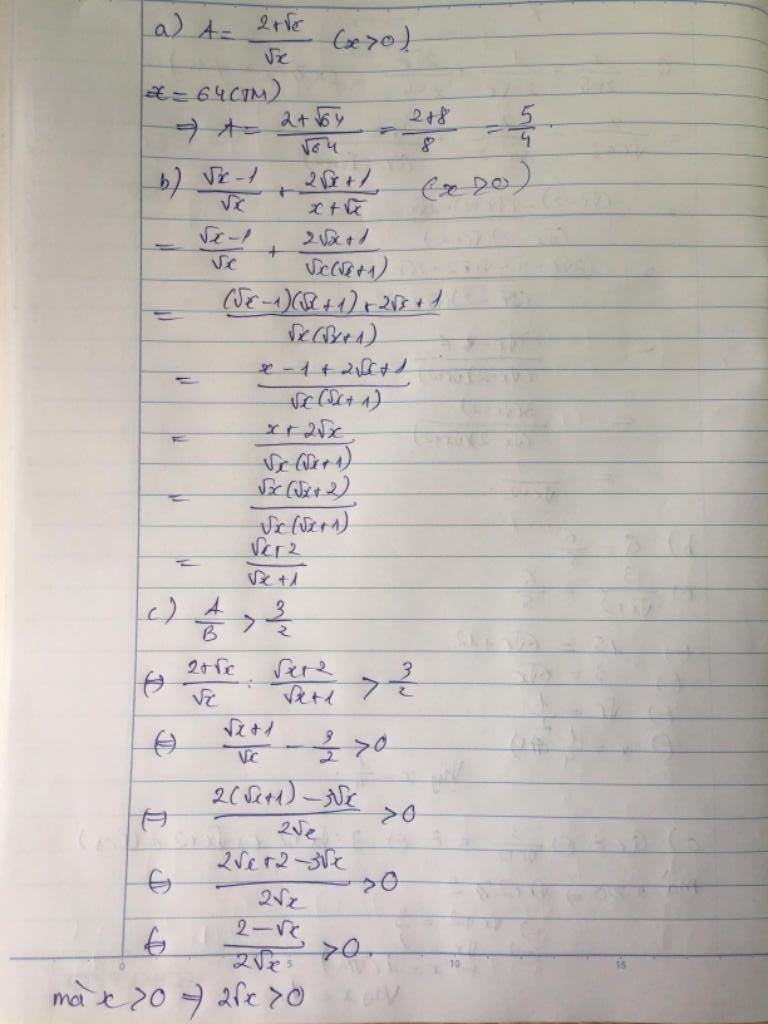 a) A = (2+√x)/√x (x>0)
x = 64 (TM)
⇒ A = (2+√64)/√64 = (2+8)/8 = 5/4.
b) (√x-1)/√x + (2√x+1)/(x+√x) (x>0)
= (√x-1)/√x + (2√x+1)/(√x(√x+1))
= ((√x-1)(√x+1)+2√x+1)/(√x(√x+1))
= (x-1+2√x+1)/(√x(√x+1))
= (x+2√x)/(√x(√x+1))
= (√x(√x+2))/(√x(√x+1))
= (√x+2)/(√x+1)
c) A/B > 3/2
⇔ (2+√x)/√x : (√x+2)/(√x+1) > 3/2
⇔ (√x+1)/√x - 3/2 > 0
⇔ (2(√x+1)-3√x)/(2√x) > 0
⇔ (2√x+2-3√x)/(2√x) > 0
⇔ (2-√x)/(2√x) > 0.
0 5 10 15
mà x>0 ⇒ 2√x>0